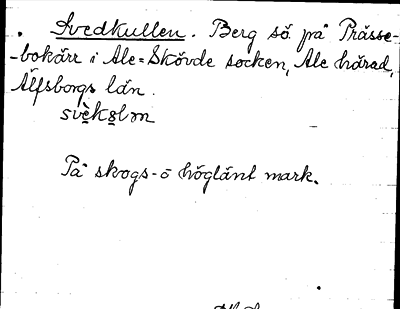 Svedkullen. Berg sö på Prässe-
-bokärr i Ale-Skövde socken, Ale härad,
Älfsborgs län.
svèkolm
På skogs- o höglänt mark.